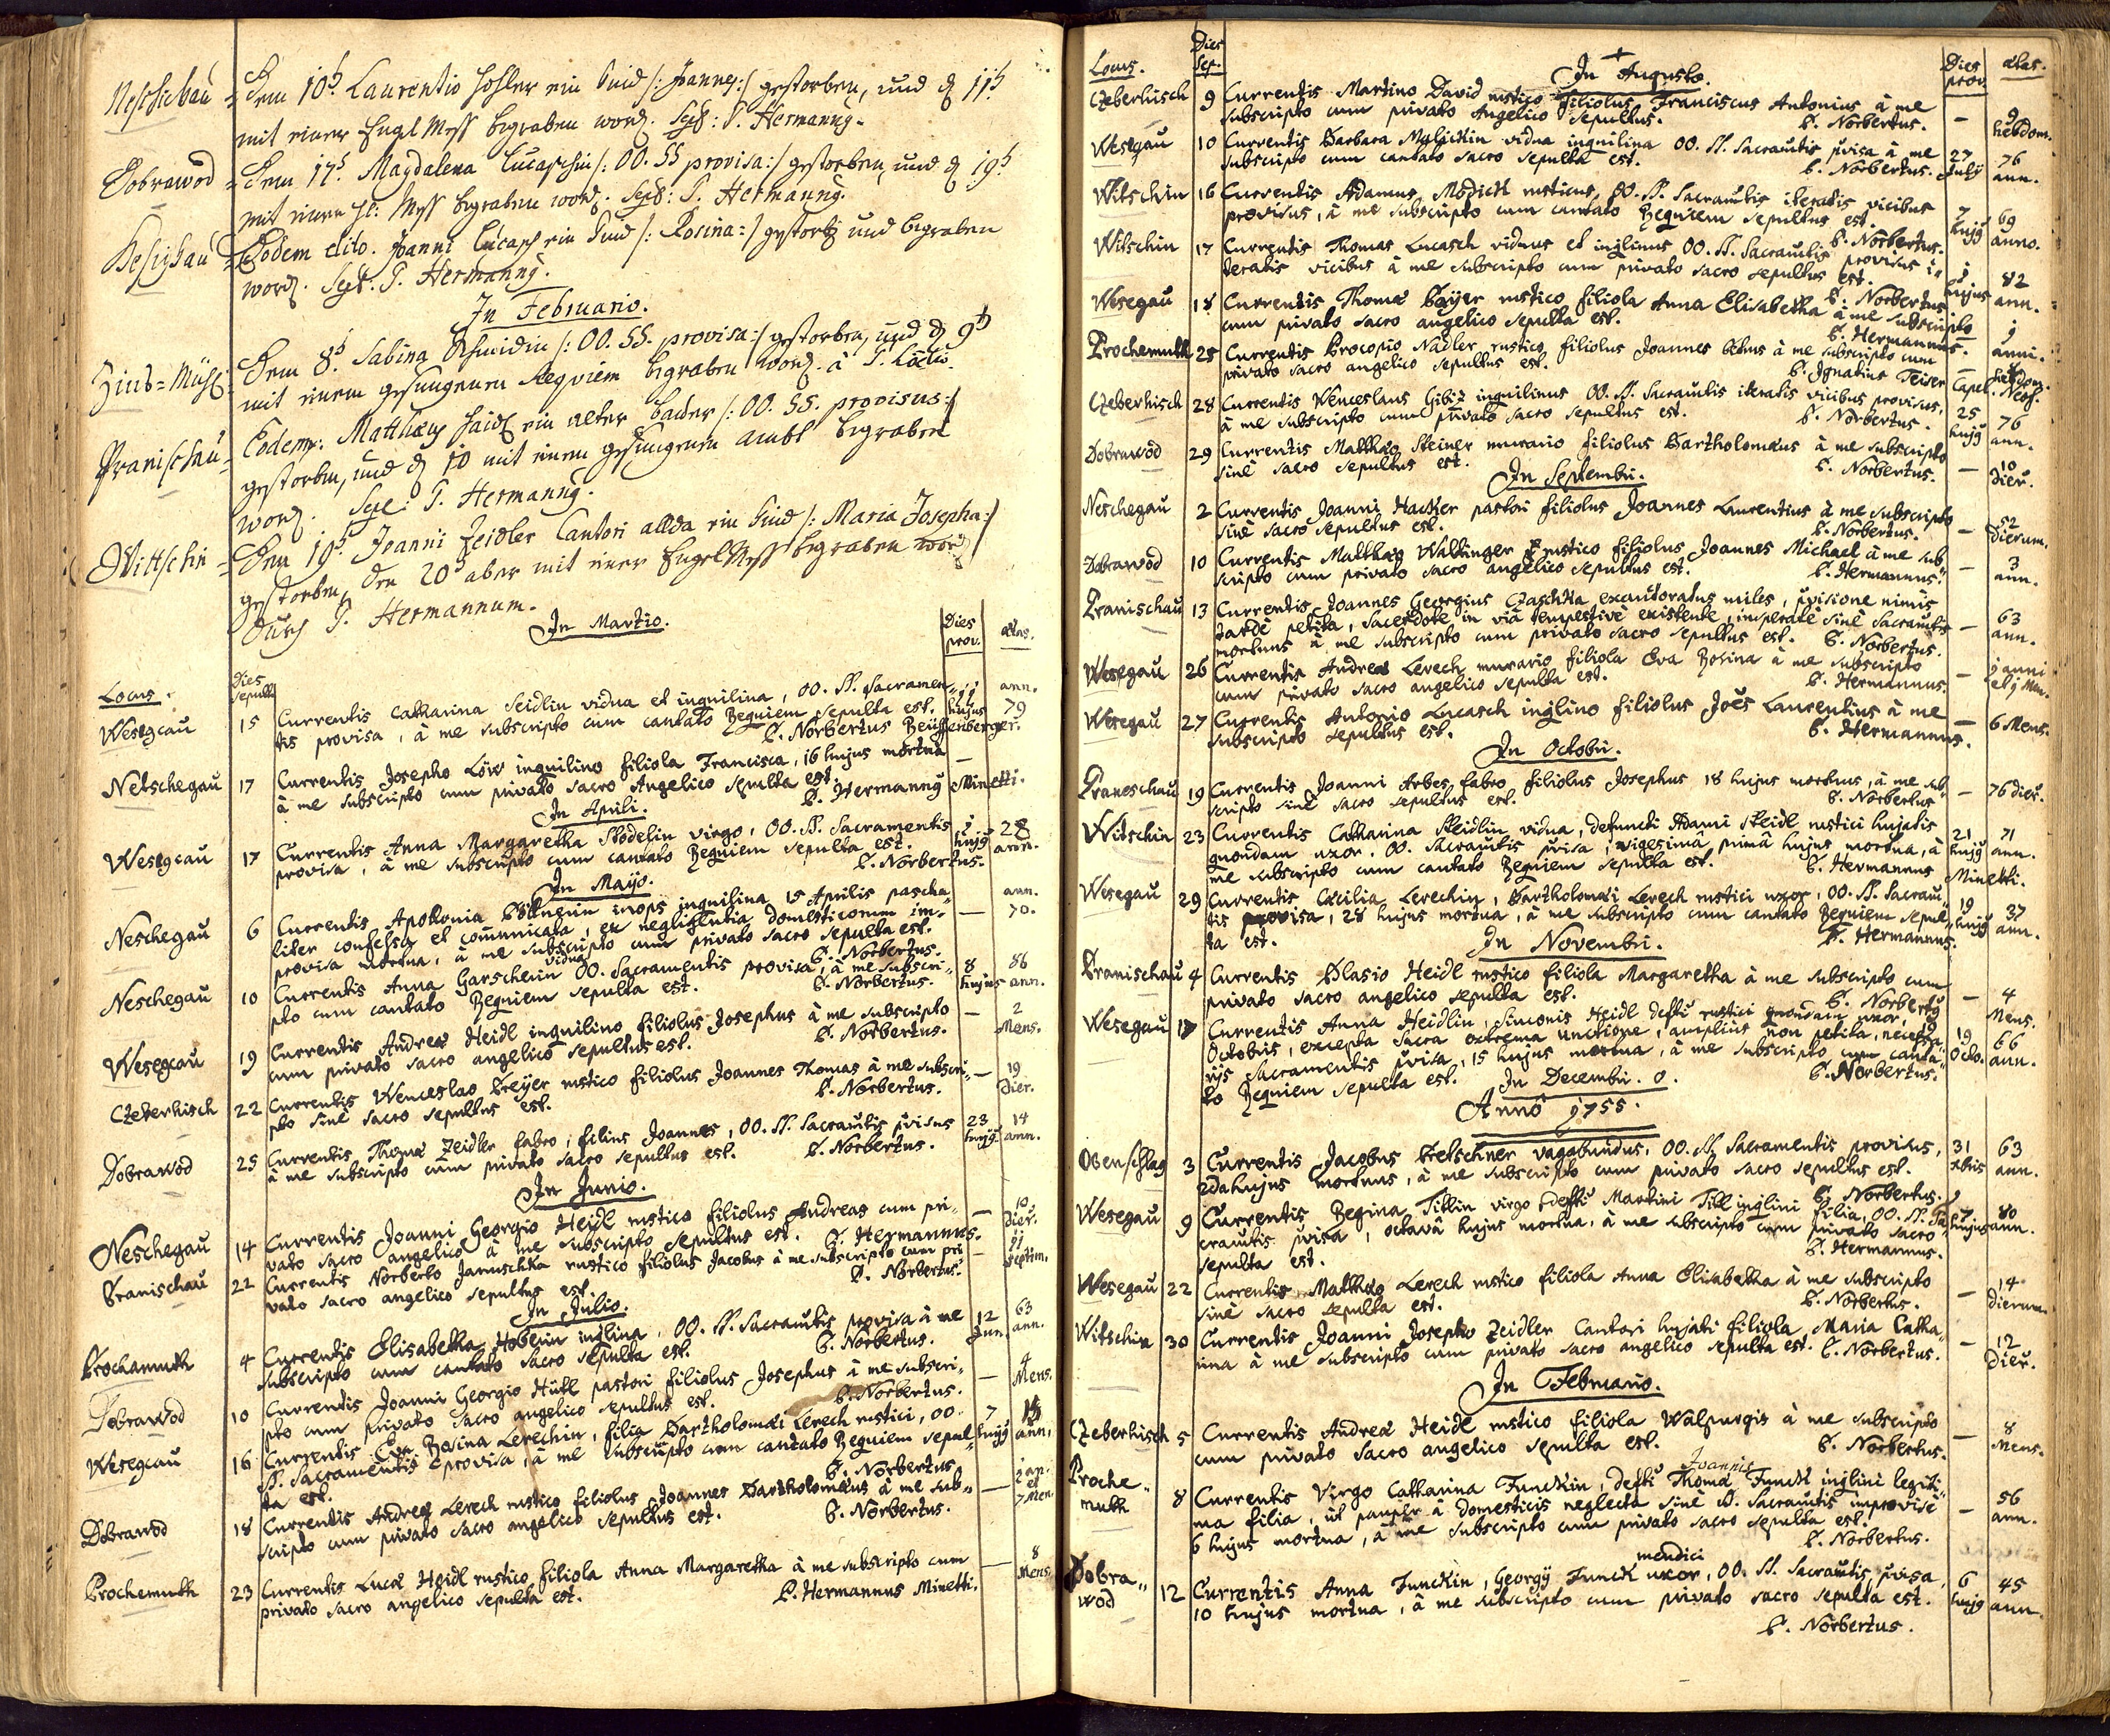 Neschebau = Dem 10t Laurentio Hohler ein Kind /: Joannes :/ gestorben, und d 11t
mit einer Engl Mess begraben word. Sepl: P. Hermanng.
Dobrawod = Dem 17t. Magdalena Lucaschin /: OO. SS provisa :/ gestorben, und d 19t
mit einer hl: Mess begraben word. Sepl: P. Hermanng.
Eodem dito. Joanni Lucasch ein Kind /: Rosina :/ gestorb und begraben
word. Sept: P. Hermanng.
In Februario.
Dem 8t Sabina /: OO. SS. provisa :/ gestorben, und d 9t
mit einem gesungenen Reqviem begraben word. à P.
Pranischau = Eodem: Matthæus Haidl ein alter /: OO. SS. provisus :/
gestorben, und d 10 mit einem gesungenen ambt begraben
word. Sepl: P. Hermanng.
Wittschin = Den 19t Joanni Zeidler Cantori allda ein Kind /: Maria Josepha :/
gestorben, den 20t aber mit einer Engel Mess begraben word
durch P. Hermannum.
In Martio. Dies prov. ætas.
Locus. Dies sepult
Wesegcau 15 Currentis Catharina Seidlin vidua et inquilina, OO. SS. Sacramen- 11 hujus ann. 79
tis provisa, à me subscripto cum cantato Requiem sepulta est.
P. Norbertus Beüffenberger.
Netschegau 17 Currentis Josepho Löw inquilino filiola Francisca, 16 hujus mortua —
à me subscripto cum privato sacro Angelico sepulta est. P. Hermanng Minetti.
In Aprili.
Wesegcau 17 Currentis Anna Margaretha Stödelin virgo, OO. SS. Sacramentis hujg 28 ann.
provisa, à me subscripto cum cantato Requiem sepulta est. P. Norbertus.
In Majo.
Neschegau 6 Currentis Apollonia inops inquilina, 15 Aprilis pascha- — ann. 70.
liter confessa et comunicata, ex negligentia domesticorum im-
provisa mortua, à me subscripto cum privato sacro sepulta est.
P. Norbertus.
Neschegau 10 Currentis Anna Garscherin vidua OO. Sacramentis provisa, à me subscri- 8 hujus 86 ann.
pto cum cantato Requiem sepulta est. P. Norbertus.
Wesegcau 19 Currentis Andreæ Heidl inquilino filiolus Josephus à me subscripto — 2 Mens.
cum privato sacro angelico sepultus est. P. Norbertus.
Czeberhisch 22 Currentis Wenceslao Breÿer rustico filiolus Joannes Thomas à me subscri- — 19 Dier.
pto sinè sacro sepultus est. P. Norbertus.
Dobrawod 25 Currentis Thomæ Zeidler fabro, filius Joannes, OO. SS. Sacrautis pvisus 23 hujg 14 ann.
à me subscripto cum privato sacro sepultus est. P. Norbertus.
In Junio.
Neschegau 14 Currentis Joanni Georgio Heidl rustico filiolus Andreas cum pri- — 10 Dier.
vato sacro angelico à me subscripto sepultus est. P. Hermannus.
Pranischau 22 Currentis Norberto Januschka rustico filiolus Jacobus à me subscripto cum pri- — 11 septim.
vato sacro angelico sepultus est. P. Norbertus.
In Julio.
Prochamuth 4 Currentis Elisabetha Hoberin inqlina, OO. SS. Sacrautis provisa à me 12 Jun. 63 ann.
subscripto cum cantato sacro sepulta est. P. Norbertus.
Dobrawod 10 Currentis Joanni Georgio Hütl pastori filiolus Josephus à me subscri- — 4 Mens.
pto cum privato sacro angelico sepultus est. P. Norbertus.
Wesegcau 16 Currentis Eva Rosina Lerechin, filia Bartholomæi Lerech rustici, OO. 7 hujg ann.
SS. Sacramentis provisa, à me subscripto cum cantato Requiem sepul-
ta est. P. Norbertus.
Dobrawod 18 Currentis Andreæ Lerech rustico filiolus Joannes Bartholomæus à me sub- — 2 an. et 7 Men.
scripto cum privato sacro angelico sepultus est. P. Norbertus.
Prochemuth 23 Currentis Lucæ Heidl rustico filiola Anna Margaretha à me subscripto cum — 8 Mens.
privato sacro angelico sepulta est. P. Hermannus Minetti.
Locus. Dies Sep. In Augusto. Dies prov. ætas.
Czeberhisch 9 Currentis Martino David rustico filiolus Franciscus Antonius à me — 9 hebdom.
subscripto cum privato Angelico sepultus. P. Norbertus.
Wesegau 10 Currentis Barbara Malickin vidua inquilina OO. SS. Sacrautis pvisa à me 27 July 76 ann.
subscripto cum cantato sacro sepulta est. P. Norbertus.
Witschin 16 Currentis Adamus Modickl rusticus, OO. SS. Sacrautis iteratis vicibus 7 hujg 69 anno.
provisus, à me subscripto cum cantato Requiem sepultus est. P. Norbertus.
Witschin 17 Currentis Thomas Lucasch viduus et inqlinus OO. SS. Sacrautis provisus i- 1 hujus 82 ann.
teratis vicibus à me subscripto cum privato sacro sepultus est. P. Norbertus
Wesegau 18 Currentis Thomæ Baÿer rustico filiola Anna Elisabetha à me subscripto 1 anni.
cum privato sacro angelico sepulta est. P. Hermannus.
Prochemuth 25 Currentis Procopio Nadler rustico filiolus Joannes à me subscripto cum hebdom.
privato sacro angelico sepultus est. P. Ignatius Teiser Capel. Neof.
Czeberhisch 28 Currentis Wenceslaus Gibiz inquilinus OO. SS. Sacrautis iteratis vicibus provisus, 25 hujg 76 ann.
à me subscripto cum privato sacro sepultus est. P. Norbertus.
Dobrawod 29 Currentis Matthæo Steiner murario filiolus Bartholomæus à me subscripto — 10 Dier.
sinè sacro sepultus est. P. Norbertus.
In Septembri.
Neschegau 2 Currentis Joanni Hacker pastori filiolus Joannes Laurentius à me subscripto — 52 Dierum.
sinè sacro sepultus est. P. Norbertus.
Dobrawod 10 Currentis Matthæo Waltinger rustico filiolus Joannes Michael à me sub- — 3 ann.
scripto cum privato sacro angelico sepultus est. P. Hermannus.
Pranischau 13 Currentis Joannes Georgius Czaschka exauctoratus miles, pvisione nimis — 63 ann.
tardè petita, sacerdote in viâ tempestivè existente, insperatè sinè Sacrautis
mortuus à me subscripto cum privato sacro sepultus est. P. Norbertus.
Wesegau 26 Currentis Andreæ Lerech murario filiola Eva Rosina à me subscripto — 1 anni et 1 Men.
cum privato sacro angelico sepulta est. P. Hermannus.
Wesegau 27 Currentis Antonio Lucasch inqlino filiolus Joes Laurentius à me — 6 Mens.
subscripto sepultus est. P. Hermannus.
In Octobri.
Praneschau 19 Currentis Joanni Arbes fabro filiolus Josephus 18 hujus mortuus, à me sub- — 76 dier.
scripto sinè sacro sepultus est. P. Norbertus
Witschin 23 Currentis Catharina Steidlin vidua, defuncti Adami Steidl rustici hujatis 21 hujg 71 ann.
quondam uxor. OO. Sacrautis pvisa, vigesimâ primâ hujus mortua, à
me subscripto cum cantato Requiem sepulta est. P. Hermannus Minetti.
Wesegau 29 Currentis Cæcilia Lerechin, Bartholomæi Lerech rustici uxor, OO. SS. Sacrau- 19 hujg 37 ann.
tis provisa, 28 hujus mortua, à me subscripto cum cantato Requiem sepul-
ta est. P. Hermannus.
In Novembri.
Pranischau 4 Currentis Blasio Heidl rustico filiola Margaretha à me subscripto cum — 4 Mens.
privato sacro angelico sepulta est. P. Norbertg
Wesegau 17 Currentis Anna Heidlin, Simonis Heidl defti rustici quondam uxor, 19 Octo. 66 ann.
Octobris, excepta sacra extrema unctione, amplius non petita, necessa-
rijs Sacramentis pvisa, 15 hujus mortua, à me subscripto cum canta-
to Requiem sepulta est. P. Norbertus.
In Decembri. 0.
Annô 1755.
Obenschlag 3 Currentis Jacobus Bretschner vagabundus, OO. SS. Sacramentis provisus, 31 xbris 63 ann.
2da hujus mortuus, à me subscripto cum privato sacro sepultus est.
P. Norbertus.
Wesegau 9 Currentis Regina Tillin virgo defti Martini Till inqlini filia, OO. SS. Sa- 7 hujus 80 ann.
crautis pvisa, octavâ hujus mortua, à me subscripto cum privato sacro
sepulta est. P. Hermannus.
Wesegau 22 Currentis Matthæo Lerech rustico filiola Anna Elisabetha à me subscripto — 14 dierum.
sinè sacro sepulta est. P. Norbertus.
Witschin 30 Currentis Joanni Josepho Zeidler Cantori hujati filiola Maria Catha- — 12 Dier.
rina à me subscripto cum privato sacro angelico sepulta est. P. Norbertus.
In Februario.
Czeberhisch 5 Currentis Andreæ Heidl rustico filiola Walpurgis à me subscripto — 8 Mens.
cum privato sacro angelico sepulta est. P. Norbertus.
Joannis
Proche- muth 8 Currentis Virgo Catharina Funckin, defti Thomæ Funckl inqlini legiti- — 56 ann.
ma filia, ut pauper à domesticis neglecta sinè SS. Sacrautis improvisè
6 hujus mortua, à me subscripto cum privato sacro sepulta est.
P. Norbertus.
mendici
Dobra- wod 12 Currentis Anna Funckin, Georgÿ Funck uxor, OO. SS. Sacrautis pvisa, 6 hujg 45 ann.
10 hujus mortua, à me subscripto cum privato sacro sepulta est.
P. Norbertus.